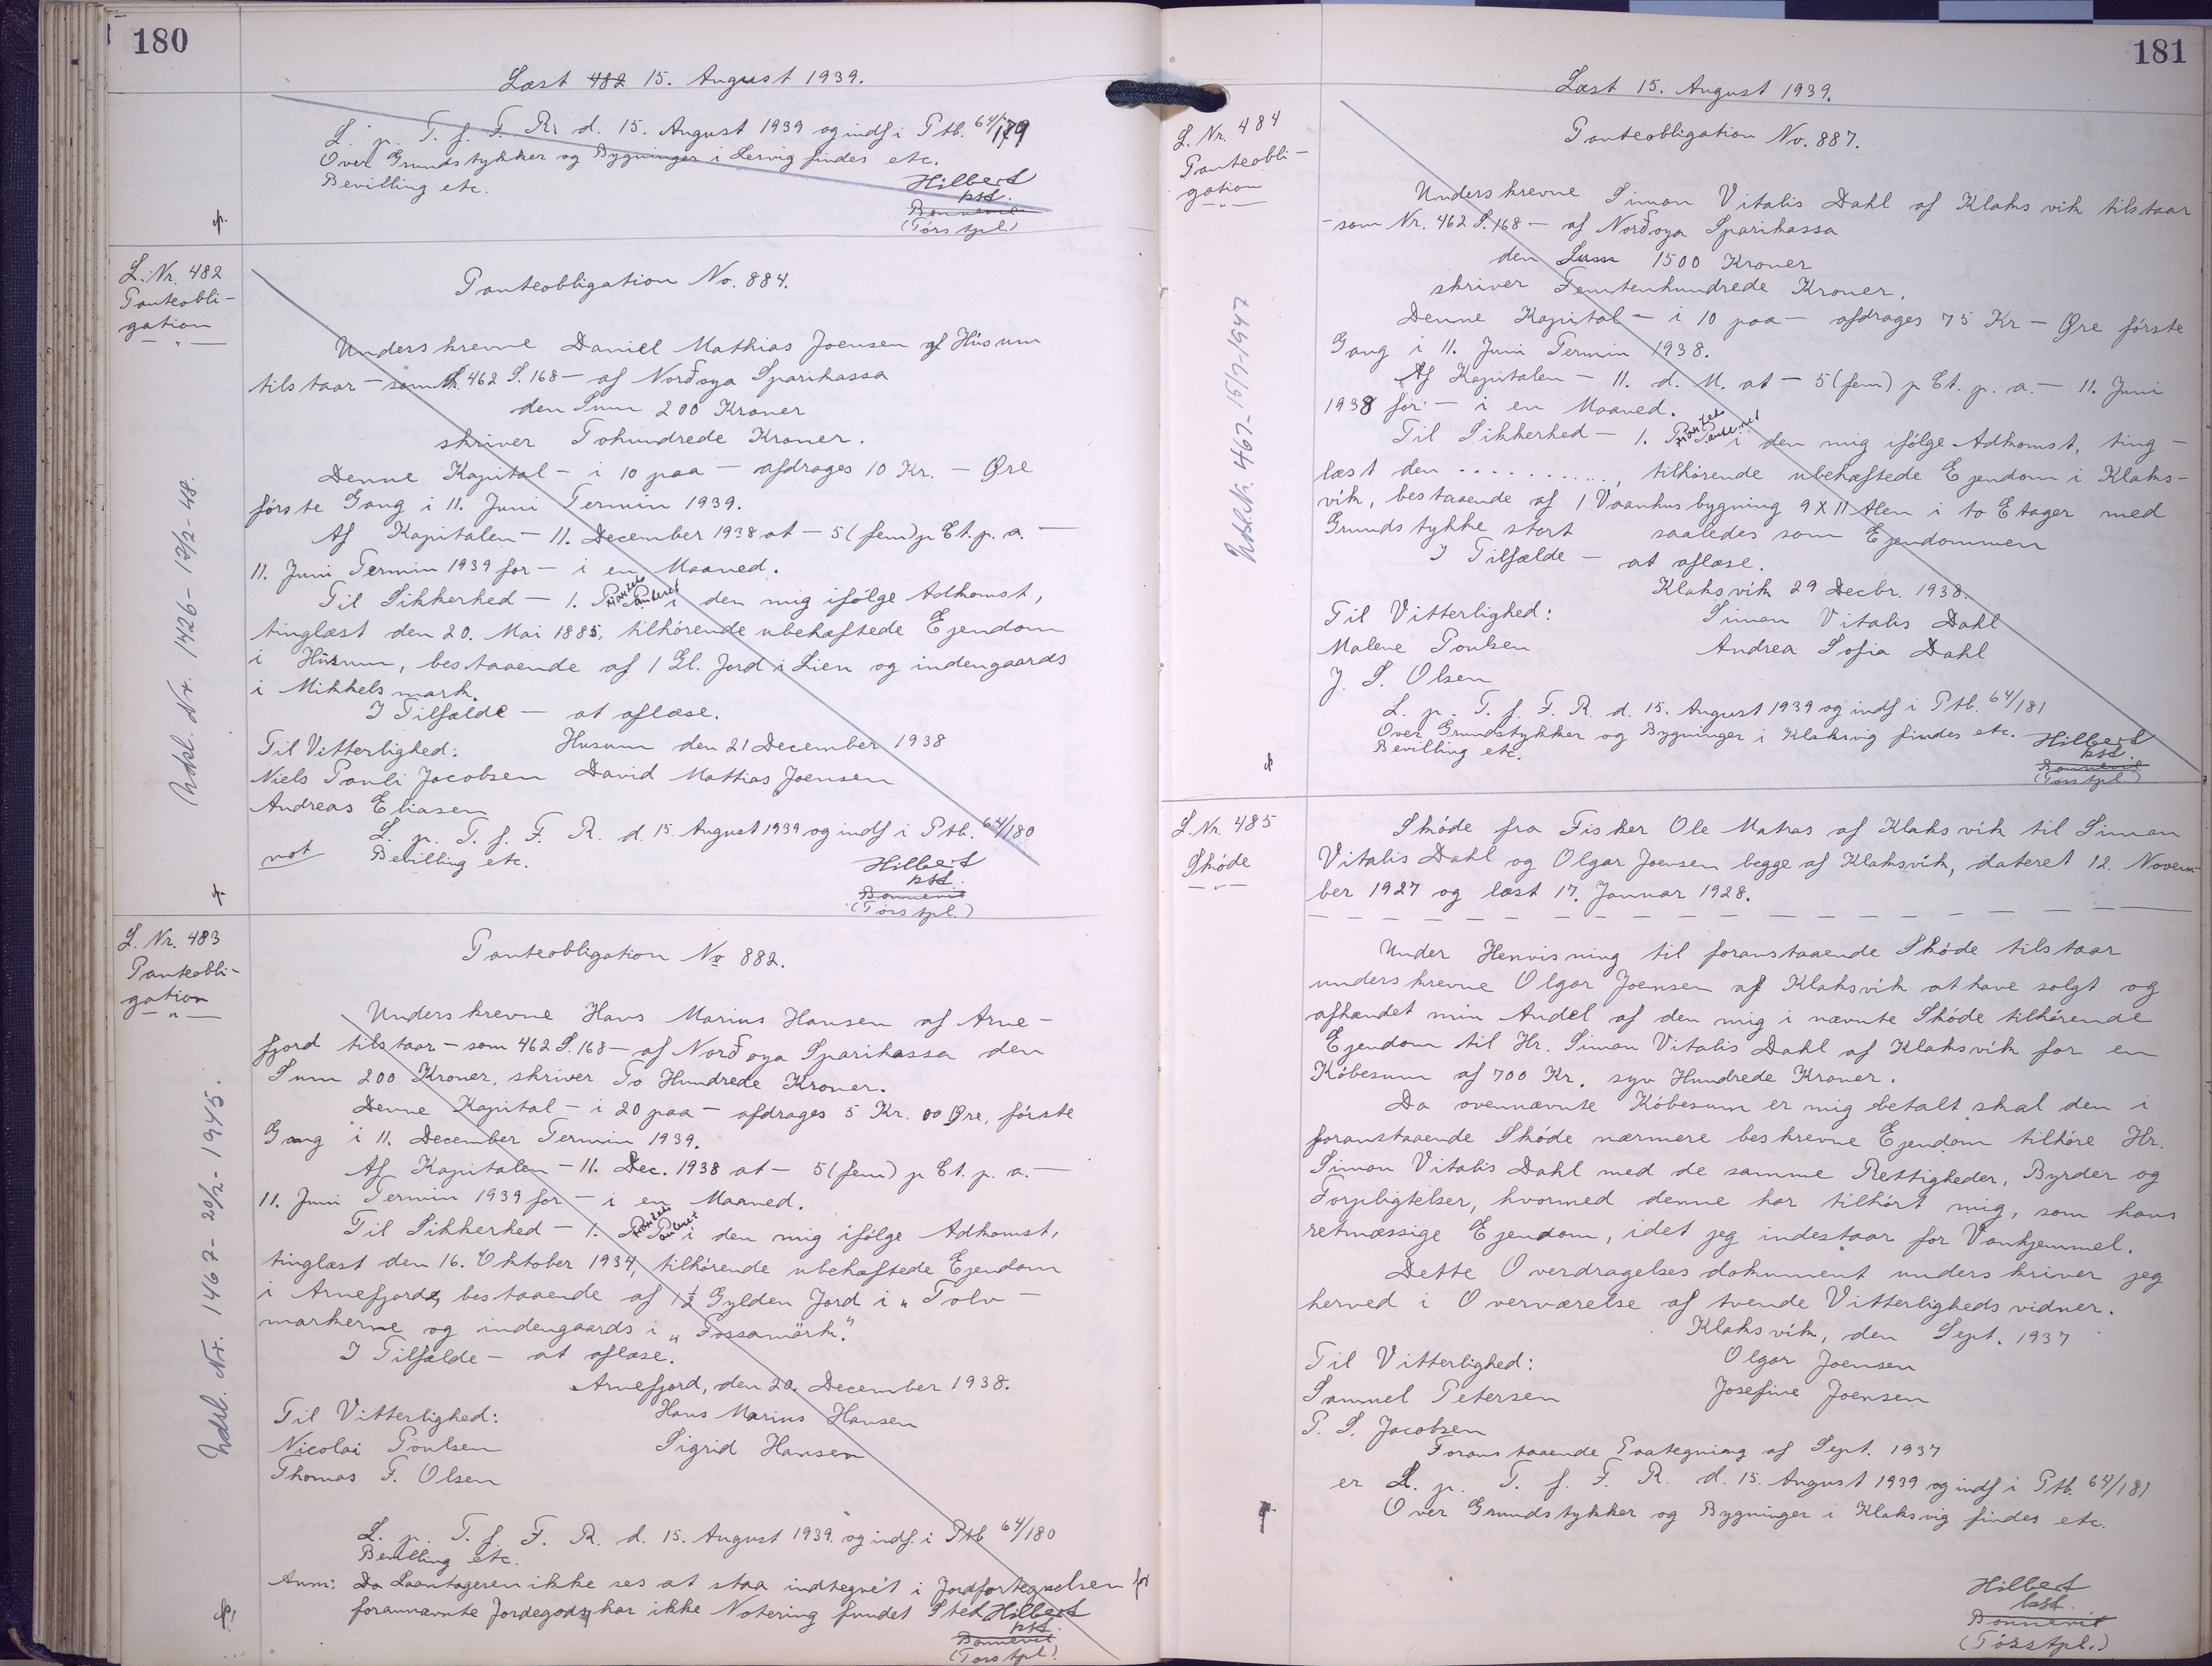 180
Læst 482 15. August 1939.
L. p. T. f. F. R. d. 15. August 1939 og indf i Ptb. 64/179
Over Grundstykker og Bygninger i Lervig findes etc.
Bevilling etc.
Hilbert
kst.
(Torstpl.)
L. Nr. 482
Panteobli-
gation
Panteobligation No. 884.
Underskrevne Daniel Mathias Joensen af Húsum
tilstaar - som Nr. 462 S. 168 - af Norðoya Sparikassa
den Sum 200 Kroner
skriver Tohundrede Kroner.
Denne Kapital - i 10 paa - afdrages 10 Kr. - Øre
förste Gang i 11. Juni Termin 1939.
Af Kapitalen - 11. December 1938 at - 5 (fem) p Ct. p. a. -
11. Juni Termin 1939 for - i en Maaned.
Til Sikkerhed - 1. Prioritets Panteret i den mig ifölge Adkomst,
tinglæst den 20. Mai 1885, tilhörende ubehæftede Ejendom
i Húsum, bestaaende af 1 Gl. Jord i Lien og indengaards
i Mikkelsmark.
I Tilfælde - at aflæse.
Til Vitterlighed: Husum den 21 December 1938
Niels Pauli Jacobsen David Mathias Joensen
Andreas Eliasen
L. p. T. f. F. R. d. 15. August 1939 og indf i Ptb. 64/180
not Bevilling etc.
Hilbert
kst.
(Torstpl.)
Udsl. Nr. 1426 - 13/2 - 48.
L. Nr. 483
Panteobli-
gation
Panteobligation No 882.
Underskrevne Hans Marius Hansen af Arne-
fjord tilstaar - som 462 S. 168 - af Norðoya Sparikassa den
Sum 200 Kroner, skriver To Hundrede Kroner.
Denne Kapital - i 20 paa - afdrages 5 Kr. 00 Øre, förste
Gang i 11. December Termin 1939.
Af Kapitalen - 11. Dec. 1938 at - 5 (fem) p Ct. p. a. -
11. Juni Termin 1939 for - i en Maaned.
Til Sikkerhed - 1. Prioritets Panteret i den mig ifölge Adkomst,
tinglæst den 16. Oktober 1934, tilhörende ubehæftede Ejendom
i Arnefjord, bestaaende af 1 1/2 Gylden Jord i "Tolv-
markerne og indengaards i "Fossamörk."
I Tilfælde - at aflæse.
Arnefjord, den 20. December 1938.
Til Vitterlighed: Hans Marius Hansen
Nicolai Poulsen Sigrid Hansen
Thomas F. Olsen
L. p. T. f. F. R. d. 15. August 1939. og indf. i Ptb 64/180
Bevilling etc.
Anm: Da Laantageren ikke ses at staa indtegnet i Jordfortegnelsen for
forannævnte Jordegods, har ikke Notering fundet Sted Hilbert
kst.
(Torstpl.)
Udsl. Nr. 1467 - 20/2 - 1945.
181
Læst 15. August 1939.
L. Nr. 484
Panteobli-
gation
Panteobligation No. 887.
Underskrevne Simon Vitalis Dahl af Klaksvik tilstaar
- som Nr. 462 S. 168 - af Norðoya Sparikassa
den Sum 1500 Kroner
skriver Femtenhundrede Kroner.
Denne Kapital - i 10 paa - afdrages 75 Kr - Øre förste
Gang i 11. Juni Termin 1938.
Af Kapitalen - 11. d. M. at - 5 (fem) p Ct. p. a. - 11. Juni
1938 for - i en Maaned.
Til Sikkerhed - 1. Prioritets Panteret i den mig ifölge Adkomst, ting-
læst den ........, tilhörende ubehæftede Ejendom i Klaks-
vik, bestaaende af 1 Vaanhusbygning 9 X 11 Alen i to Etager med
Grundstykke stort saaledes som Ejendommen
I Tilfælde - at aflæse.
Klaksvik 29 Decbr. 1938.
Til Vitterlighed: Simon Vitalis Dahl
Malene Poulsen Andrea Sofia Dahl
J. S. Olsen
L. p. T. f. F. R. d. 15. August 1939 og indf i Ptb. 64/181
Over Grundstykker og Bygninger i Klaksvig findes etc.
Bevilling etc.
Hilbert
kst.
(Torstpl.)
467 - 15/7-1947
L. Nr. 485
Sköde
Sköde fra Fisker Ole Matras af Klaksvik til Simon
Vitalis Dahl og Olgar Joensen begge af Klaksvik, dateret 12. Novem-
ber 1927 og læst 17. Januar 1928.
Under Henvisning til foranstaaende Sköde tilstaar
underskrevne Olgar Joensen af Klaksvik at have solgt og
afhændet min Andel af den mig i nævnte Sköde tilhörende
Ejendom til Hr. Simon Vitalis Dahl af Klaksvik for en
Köbesum af 700 Kr. syv Hundrede Kroner.
Da ovennævnte Köbesum er mig betalt skal den i
foranstaaende Sköde nærmere beskrevne Ejendom tilhöre Hr.
Simon Vitalis Dahl med de samme Rettigheder, Byrder og
Forpligtelser, hvormed denne har tilhört mig, som hans
retmæssige Ejendom, idet jeg indestaar for Vanhjemmel.
Dette Overdragelsesdokument underskriver jeg
herved i Overværelse af tvende Vitterlighedsvidner.
Klaksvik, den Sept. 1937
Til Vitterlighed: Olgar Joensen
Samuel Petersen Josefine Joensen
P. S. Jacobsen
Foranstaaende Paategning af Sept. 1937
er L. p. T. f. F. R. d. 15. August 1939 og indf i Ptb. 64/181
Over Grundstykker og Bygninger i Klaksvig findes etc.
Hilbert
kst.
(Torstpl.)